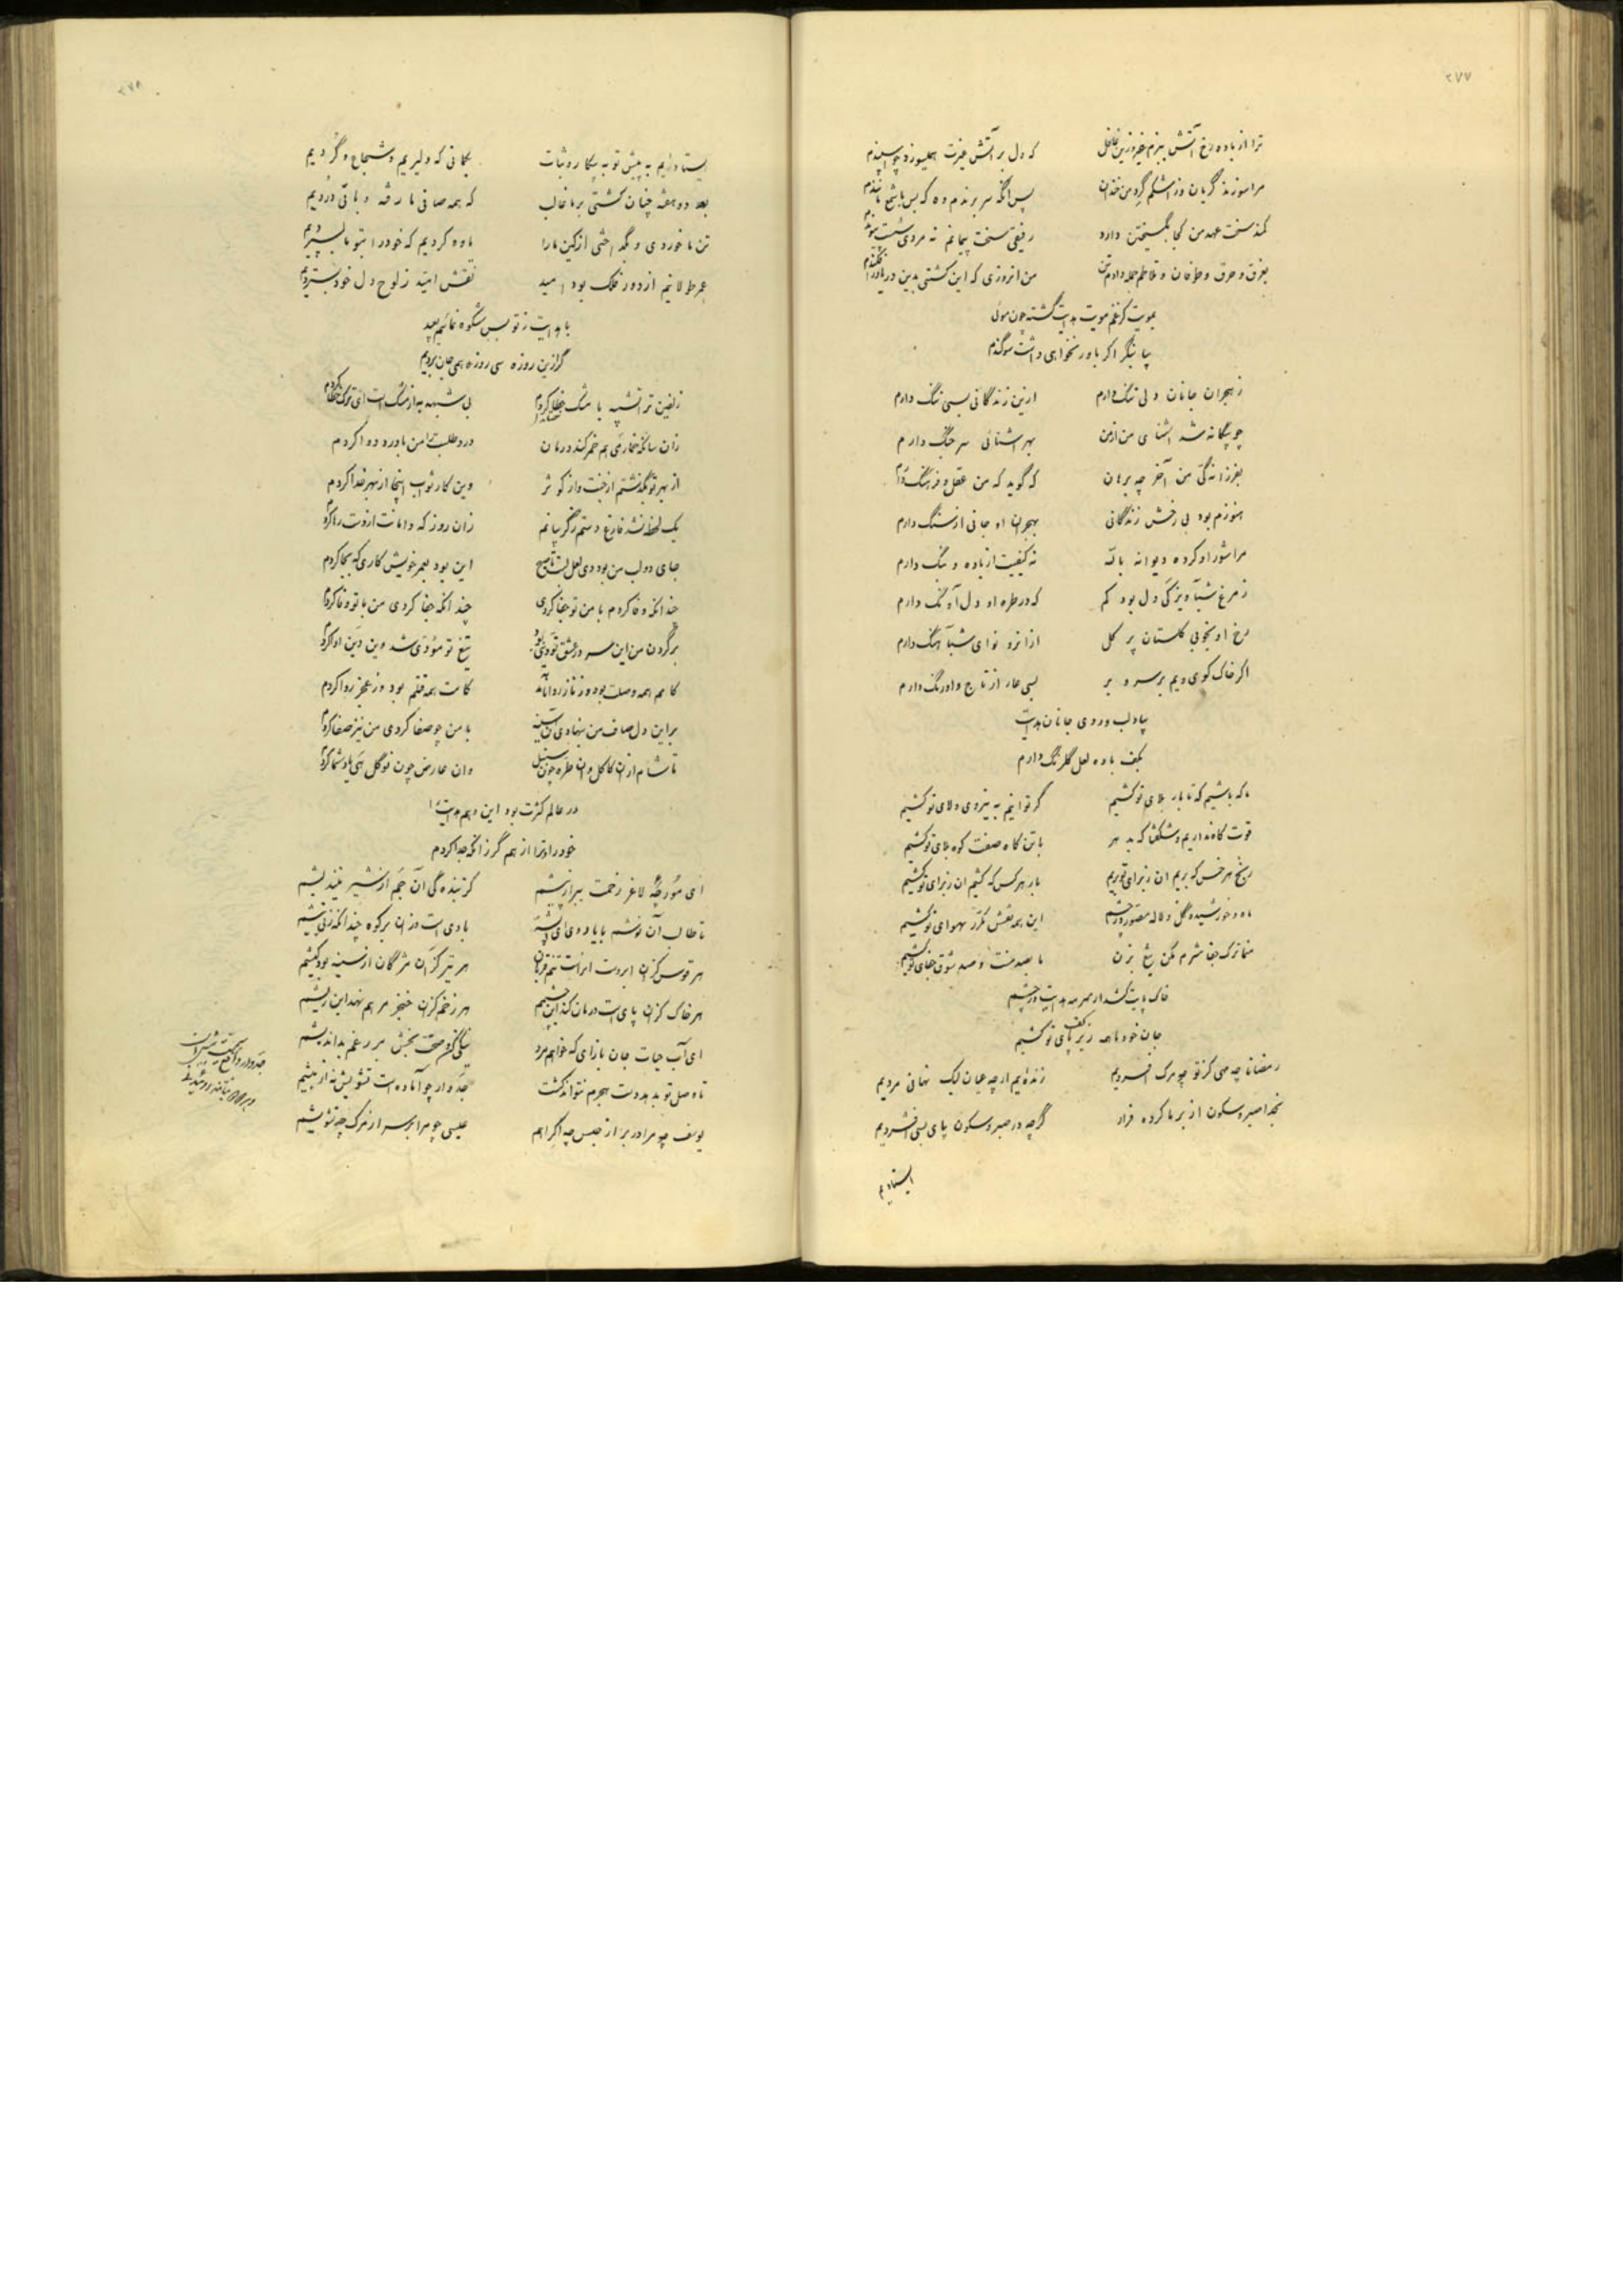 ۲۷۷
ترا از باده رخ آتش بزم غیر و زین غافل که دل بر آتش غیرت همیسوزد چو اسپندم
مرا سوزند گریان وز اشکم گرد من خندان پس آنگه سر برندم وه که بس با شمع مانندم
کمند سخت عهد من کجا بگسیختن دارد رفیقی سخت پیمانم نه مردی سست پیوندم
بغرق و حرق و طوفان و تلاطم جمله دادم تن من آنروزی که این کشتی بدین دریا در افکندم
بمویت کز غم مویت هدایت گشته چون موئی
بیا بنگر اگر باور نخواهی داشت سوگندم
ز هجران جانان دلی تنگ دارم ازین زندگانی بسی ننگ دارم
چو بیگانه شد آشنای من از من بهر آشنائی سر جنگ دارم
بفرزانگی من آخر چه برهان که گوید که من عقل و فرهنگ دارم
هنوزم بود بی رخش زندگانی بهجران او جانی از سنگ دارم
مرا شور او کرده دیوانه بالله نه کیفیت از باده و بنگ دارم
ز مرغ شب‌آویز کی دل بود کم که در طره او دل آونگ دارم
رخ او بخوبی گلستان پر گل ازانرو نوای شب‌آهنگ دارم
اگر خاک کوی ویم بر سر و بر بسی عار از تاج و اورنگ دارم
بیاد لب و روی جانان هدایت
بکف باده لعل گلرنگ دارم
ما که باشیم که تا بار بلای تو کشیم گر توانیم به نیروی ولای تو کشیم
قوت کاه نداریم و شگفتا که بد هر با تن کاه صفت کوه بلای تو کشیم
رنج هر خس که بریم آن ز برای تو بریم بار هر کس که کشیم آن ز برای تو کشیم
ماه و خورشید و گل و لاله مصور در چشم این همه نقش مکرر بهوای تو کشیم
صنما ترک جفا شرم مکن تیغ بزن ما بصد منت و صد شوق جفای تو کشیم
خاک پایت کشد ار سرمه هدایت در چشم
جان خود ما همه زیر کف پای تو کشیم
رمضانا چه مهی کز تو چو مرگ افسردیم زنده‌ایم ار چه عیان لیک نهانی مردیم
بخدا صبر و سکون از بر ما کرده فرار گرچه در صبر و سکون پای بسی افشردیم
ایستادیم
۲۷۸
ایستادیم به پیش تو به پیکار و ثبات بگمانی که دلیریم و شجاع و گردیم
بعد دو هفته چنان گشتی بر ما غالب که همه صافی ما رفته و باقی دردیم
تن ما خوردی و بگداختی از کین ما را ما وه کردیم که خود را بتو ما بسپردیم
عمر طولانیم از دور فلک بود امید نقش امید ز لوح دل خود بستردیم
با هدایت ز تو بس شکوه نمائیم بعید
گر ازین روزه سی روزه همی جان بردیم
زلفین ترا تشبیه با مشک خطا کردم بی شبهه به از مشک است ای ترک خطا کردم
زان سانکه خمار می هم خمر کند درمان درد طلبت را من با درد دوا کردم
از بهر تو بگذشتم از جنت و از کوثر وین کار ثواب اینجا از بهر خدا کردم
یک لحظه نشد فارغ دستم ز گریبانم زان روز که دامانت از دست رها کردم
جای دو لب من بود دی لعل لبت تا صبح این بود بعمر خویش کاری که بجا کردم
چندانکه وفا کردم با من تو جفا کردی چندانکه جفا کردی من با تو وفا کردم
بر گردن من این سر در عشق تو دینی بود تیغ تو مؤدی شد وین دین ادا کردم
کامم همه وصلت بود وز ناز روا کامت همه قتلم بود وز عجز روا کردم
بر این دل صاف من بنهادی آئینه با من چو صفا کردی من نیز صفا کردم
تا شام ازان کاکل وان طره چون سنبل وان عارض چون نو گل هی یاد شما کردم
در عالم کثرت بود این وهم هدایت را
خود را و ترا از هم گر زانکه جدا کردم
ای مورچه لاغر زحمت ببر از پیشم گر تبنده گی آن جم از شیر نیندیشم
تا طالب آن نوشم با یاد وی ای پشه بادی است وزان بر کوه چندانکه زنی نیشم
هر قوس کزان ابروست ایراست تنم قربان هر تیر کزان مژگان از سینه بود کیشم
هر خاک کزان پای است درمان کند این چشمم هر زخم کزان خنجر مرهم نهد این ریشم
ای آب حیات جان بازای که خواهم مرد نیکی کن و صحت بخش بر رغم بداندیشم
تا وصل تو بد بدرود هجرم نتواند کشت جدوار چو آماده است تشویش نه از بیشم
یوسف چو مرا در بر از حبس چه اکراهم عیسی چو مرا بر سر از مرگ چه تشویشم